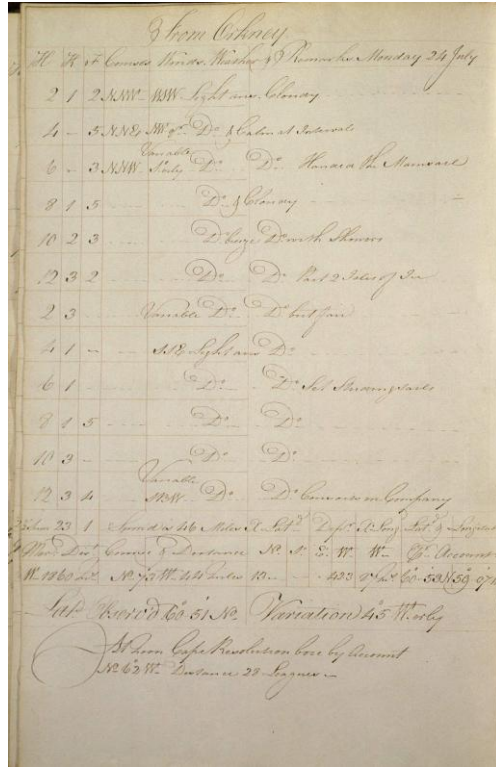 From Orkney
H K F Courses Winds Weather & Remarks Monday 24 July
2 1 2 NNW WSW Light airs Cloudy
4 - 5 NNE Do & Calm at Intervals
Variable
6 - 3 NNW Do Do Handed the Mainsail
8 1 5 Do & Cloudy
10 2 3 Do breeze Do with Showers
12 3 2 Do Do Past 2 Isles of Ice
2 3 Variable Do Do but fair
4 1 - Light airs Do
6 1 Do Do Set Studdingsails
8 1 5 Do Do
10 3 - Do Do
Variable
12 3 4 Do Do Convoys in Company
23 1 46 Miles D. Latd Depr D. Long Lat. & Longitude
Course & Distance No S. E. W. W. Pr. Account
No 73 W. 44 Miles 13 423 60 53 N 59
Lat. Observ'd 60 51 No Variation 45 Werly
At Noon Cape Resolution bore by Account
No 62 W. Distance 28 Leagues